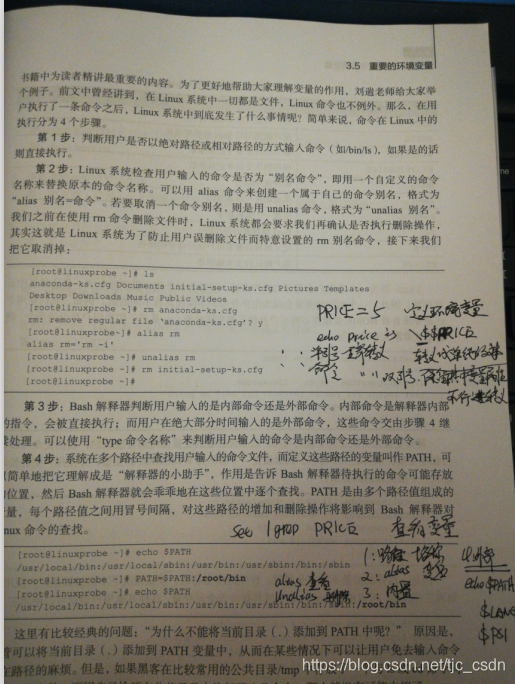 3.5 重要的环境变量
书籍中为读者精讲最重要的内容。为了更好地帮助大家理解变量的作用，刘遄老师给大家举
个例子。前文中曾经讲到，在 Linux 系统中一切都是文件，Linux 命令也不例外。那么，在用
户执行了一条命令之后，Linux 系统中到底发生了什么事情呢？简单来说，命令在 Linux 中的
执行分为 4 个步骤。
第 1 步：判断用户是否以绝对路径或相对路径的方式输入命令（如/bin/ls），如果是的话
则直接执行。
第 2 步：Linux 系统检查用户输入的命令是否为“别名命令”，即用一个自定义的命令
名称来替换原本的命令名称。可以用 alias 命令来创建一个属于自己的命令别名，格式为
“alias 别名=命令”。若要取消一个命令别名，则是用 unalias 命令，格式为“unalias 别名”。
我们之前在使用 rm 命令删除文件时，Linux 系统都会要求我们再确认是否执行删除操作，
其实这就是 Linux 系统为了防止用户误删除文件而特意设置的 rm 别名命令，接下来我们
把它取消掉：
[root@linuxprobe ~]# ls
anaconda-ks.cfg Documents initial-setup-ks.cfg Pictures Templates
Desktop Downloads Music Public Videos
[root@linuxprobe ~]# rm anaconda-ks.cfg
rm: remove regular file ‘anaconda-ks.cfg’? y
[root@linuxprobe~]# alias rm
alias rm='rm -i'
[root@linuxprobe ~]# unalias rm
[root@linuxprobe ~]# rm initial-setup-ks.cfg
[root@linuxprobe ~]#
PRICE=5 定义环境变量
echo price is \$$PRICE
单引号
双引号
第 3 步：Bash 解释器判断用户输入的是内部命令还是外部命令。内部命令是解释器内部
的指令，会被直接执行；而用户在绝大部分时间输入的是外部命令，这些命令交由步骤 4 继
续处理。可以使用“type 命令名称”来判断用户输入的命令是内部命令还是外部命令。
第 4 步：系统在多个路径中查找用户输入的命令文件，而定义这些路径的变量叫作 PATH，可
以简单地把它理解成是“解释器的小助手”，作用是告诉 Bash 解释器待执行的命令可能存放
的位置，然后 Bash 解释器就会乖乖地在这些位置中逐个查找。PATH 是由多个路径值组成的
变量，每个路径值之间用冒号间隔，对这些路径的增加和删除操作将影响到 Bash 解释器对
Linux 命令的查找。
set |grep PRICE 查看变量
[root@linuxprobe ~]# echo $PATH
/usr/local/bin:/usr/local/sbin:/usr/bin:/usr/sbin:/bin:/sbin
[root@linuxprobe ~]# PATH=$PATH:/root/bin
[root@linuxprobe ~]# echo $PATH
/usr/local/bin:/usr/local/sbin:/usr/bin:/usr/sbin:/bin:/sbin:/root/bin
alias 查看
unalias 删除
1：路径
2：alias
3：内置
echo $PATH
$LANG
$PS1
这里有比较经典的问题：“为什么不能将当前目录（.）添加到 PATH 中呢？” 原因是，
尽管可以将当前目录（.）添加到 PATH 变量中，从而在某些情况下可以让用户免去输入命令
所在路径的麻烦。但是，如果黑客在比较常用的公共目录/tmp 中
https://blog.csdn.net/tjc_csdn